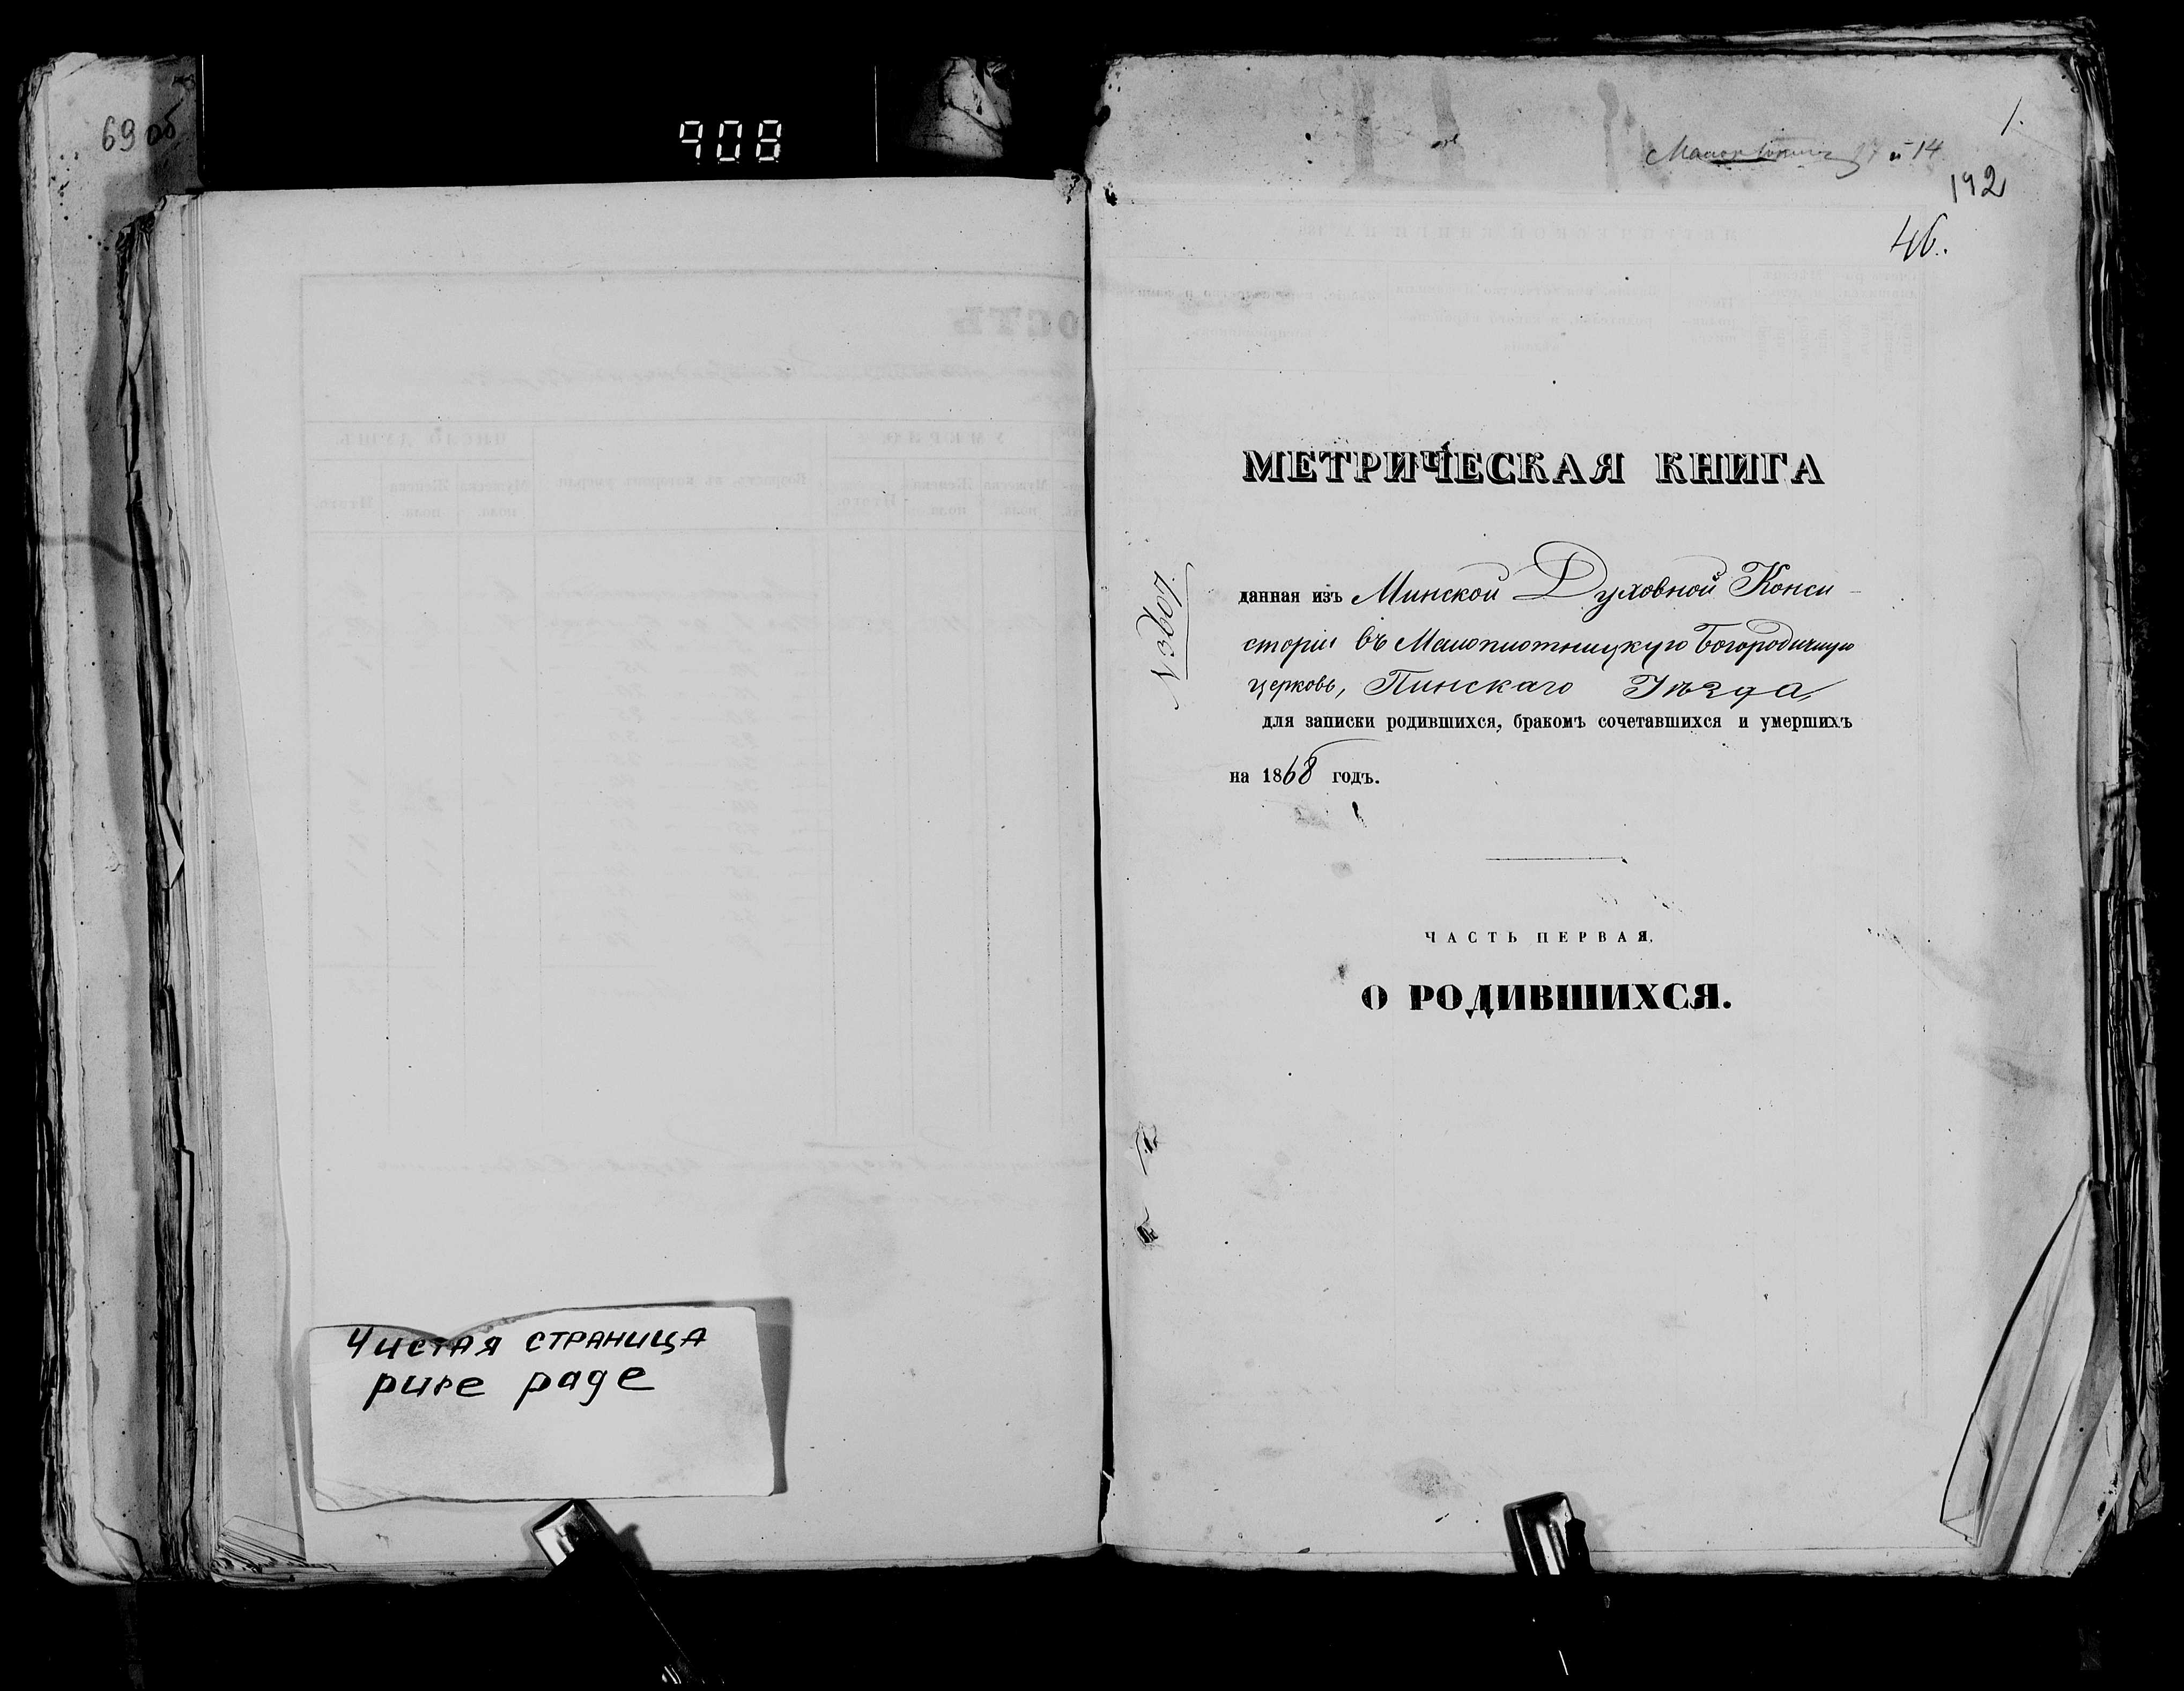 69 об
908
Чистая страница
pure page
и 14
1.
192
46.
МЕТРИЧЕСКАЯ КНИГА
данная изъ Минской Духовной Конси-
сторіи въ Малоплотницкую Богородичную
церковь, Пинскаго Уѣзда,
для записки родившихся, бракомъ сочетавшихся и умершихъ
на 1868 годъ.
N 3607.
ЧАСТЬ ПЕРВАЯ.
О РОДИВШИХСЯ.